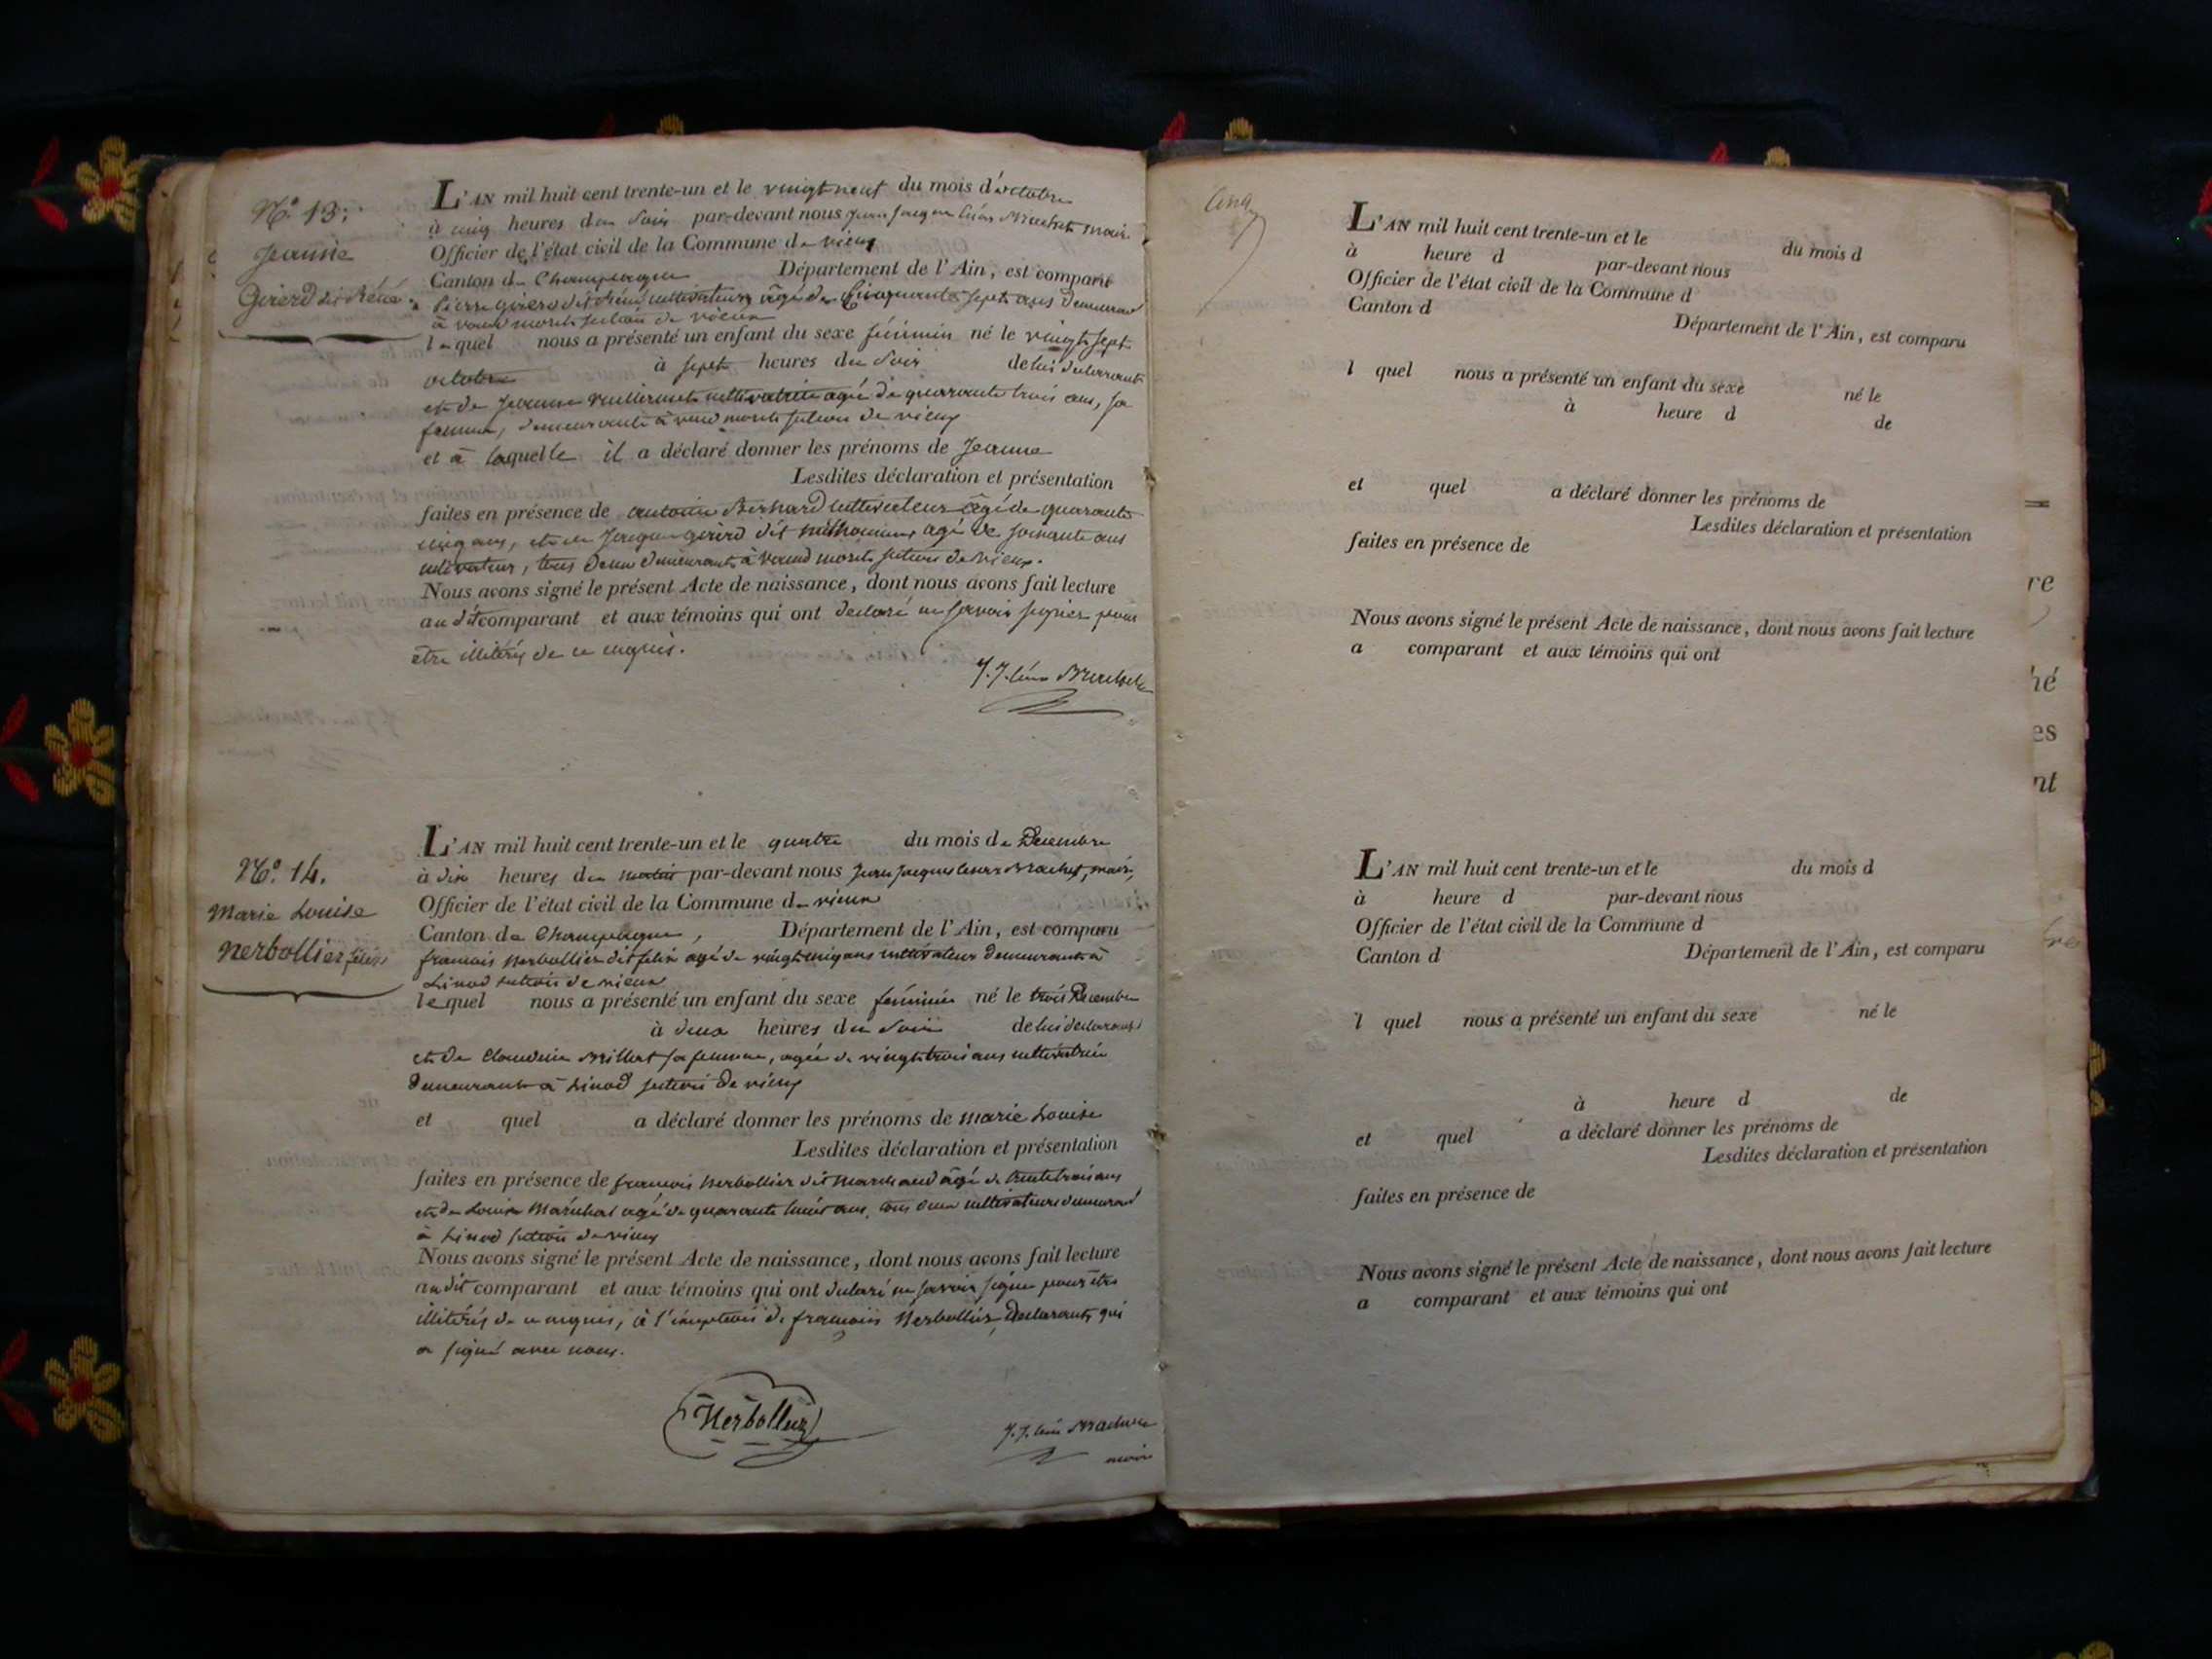 N.º 13.
Jeanne
Girerd dit Réné
L'AN mil huit cent trente-un et le vingt neuf du mois d'octobre
à cinq heures du Soir par-devant nous Jean Jacques Brachet maire
Officier de l'état civil de la Commune de vieux
Canton de Champagne Département de l'Ain, est comparu
Pierre Girerd dit Réné cultivateur âgé de Cinquante sept ans demeurant
à vaux morets section de vieux
lequel nous a présenté un enfant du sexe féminin né le vingt sept
octobre à sept heures du Soir de lui déclarant
et de Jeanne cultivatrice agée de quarante trois ans, sa
femme, demeurante à section de vieux
et à laquelle il a déclaré donner les prénoms de Jeanne
Lesdites déclaration et présentation
faites en présence de antoine Bernard cultivateur âgé de quarante
cinq ans, et de Jacques girerd dit agé de soixante ans
cultivateur, tous deux demeurants à section de vieux.
Nous avons signé le présent Acte de naissance, dont nous avons fait lecture
au dit comparant et aux témoins qui ont declaré ne savoir signer pour
être illitérés de ce enquis.
J. J. Brachet
N.º 14.
Marie Louise
Nerbollier félix
L'AN mil huit cent trente-un et le quatre du mois de Decembre
à dix heures du matin par-devant nous Jean Jacques Brachet, maire,
Officier de l'état civil de la Commune de vieux
Canton de Champagne, Département de l'Ain, est comparu
françois Nerbollier dit félix agé de vingt cinq ans cultivateur demeurant à
Linod section de vieux
lequel nous a présenté un enfant du sexe féminin né le trois Decembre
à deux heures du Soir de lui déclarant
et de Claudine Brillat sa femme, agée de vingt trois ans cultivatrice
demeurante à Linod section de vieux
et quel a déclaré donner les prénoms de Marie Louise
Lesdites déclaration et présentation
faites en présence de françois Nerbollier dit Marchand âgé de trente trois ans
et de Louis Maréchal agé de quarante huit ans, tous deux cultivateurs demeurant
à Linod section de vieux
Nous avons signé le présent Acte de naissance, dont nous avons fait lecture
au dit comparant et aux témoins qui ont déclaré ne savoir signer pour être
illitérés de ce enquis, à l'exception de françois Nerbollier, Déclarant, qui
a signé avec nous.
Nerbollier
J. J. Brachet
maire
Cinq
L'AN mil huit cent trente-un et le du mois d
à heure d par-devant nous
Officier de l'état civil de la Commune d
Canton d
Département de l'Ain, est comparu
l quel nous a présenté un enfant du sexe né le
à heure d de
et quel a déclaré donner les prénoms de
Lesdites déclaration et présentation
faites en présence de
Nous avons signé le présent Acte de naissance, dont nous avons fait lecture
a comparant et aux témoins qui ont
L'AN mil huit cent trente-un et le du mois d
à heure d par-devant nous
Officier de l'état civil de la Commune d
Canton d Département de l'Ain, est comparu
l quel nous a présenté un enfant du sexe né le
à heure d de
et quel a déclaré donner les prénoms de
Lesdites déclaration et présentation
faites en présence de
Nous avons signé le présent Acte de naissance, dont nous avons fait lecture
a comparant et aux témoins qui ont
re
né
es
nt